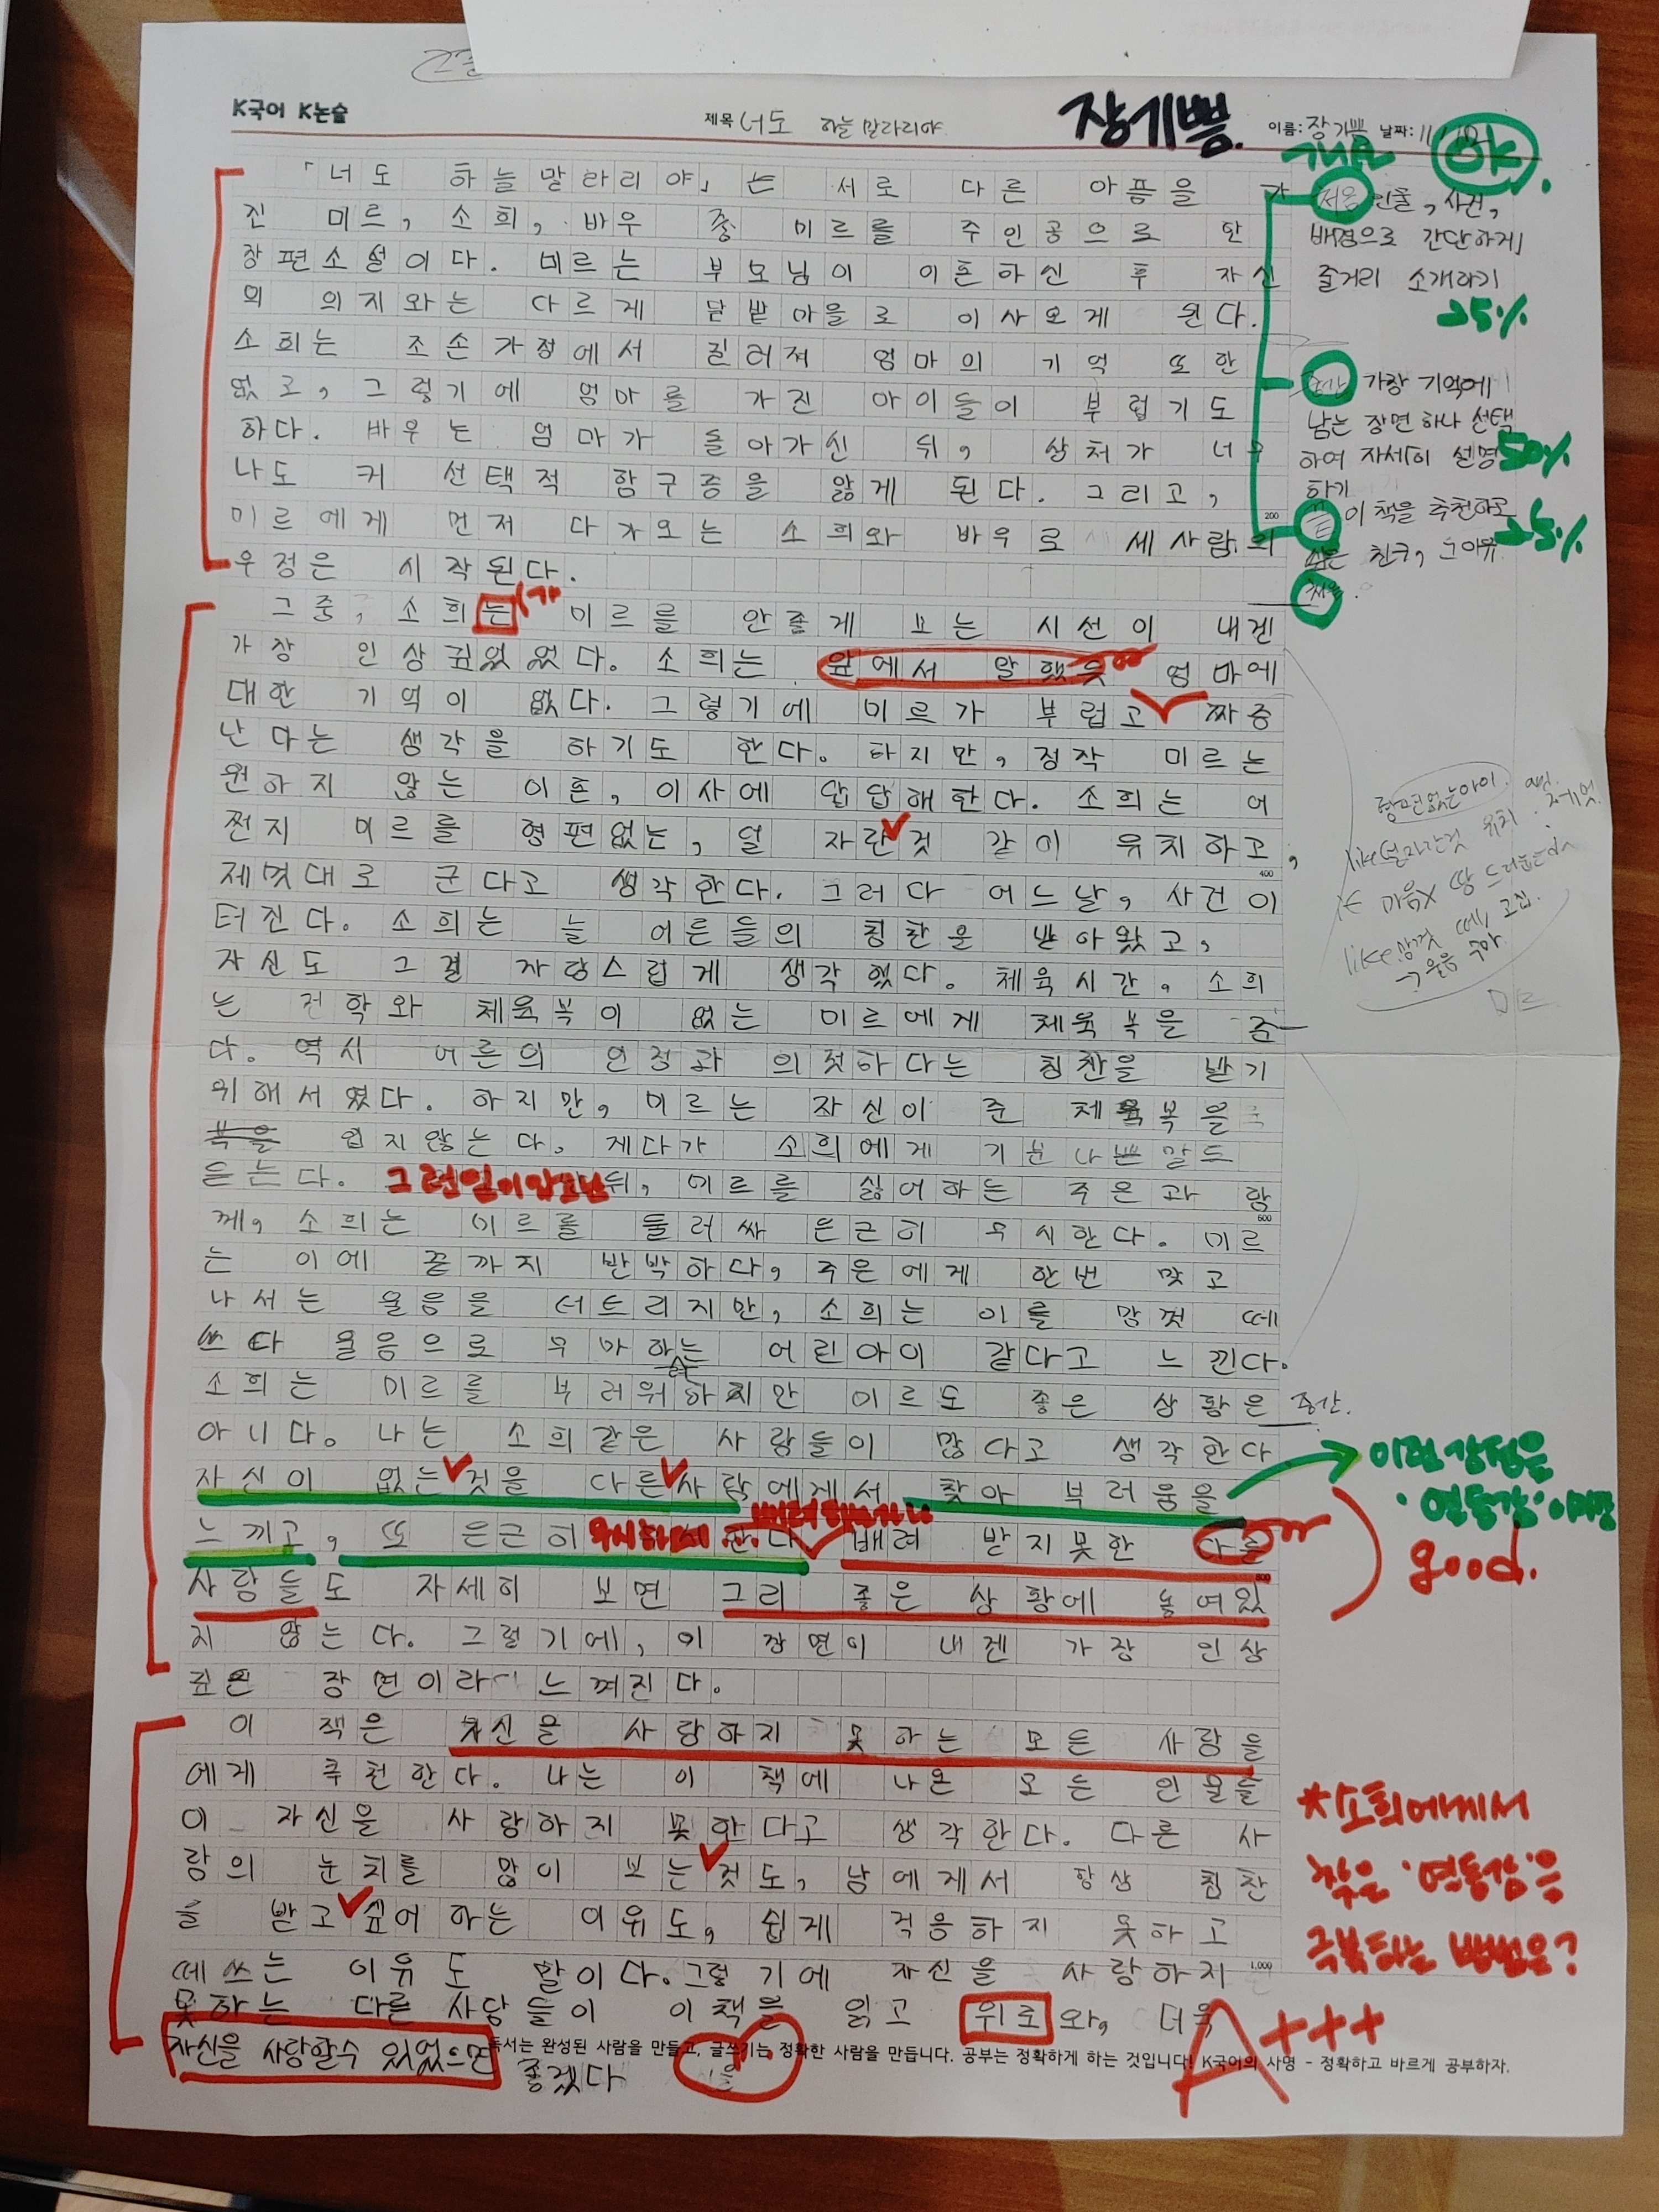 K국어 K논술
제목 너도 하늘말라리야
장기쁨.
이름: 장기쁨 날짜: 11/
개요 OK.
「너도 하늘말라리야」는 서로 다른 아픔을 가
진 미르, 소희, 바우 중 미르를 주인공으로 한
장편소설이다. 미르는 부모님이 이혼하신 후 자신
의 의지와는 다르게 달밭마을로 이사오게 된다.
소희는 조손가정에서 길러져 엄마의 기억 또한
없고, 그렇기에 엄마를 가진 아이들이 부럽기도
하다. 바우는 엄마가 돌아가신 뒤, 상처가 너무
나도 커 선택적 함구증을 앓게 된다. 그리고,
미르에게 먼저 다가오는 소희와 바우로 세사람의
200
우정은 시작된다.
그중, 소희는 미르를 안좋게 보는 시선이 내겐
가
가장 인상깊었었다. 소희는 앞에서 말했듯 엄마에
대한 기억이 없다. 그렇기에 미르가 부럽고 짜증
난다는 생각을 하기도 한다. 하지만, 정작 미르는
원하지 않는 이혼, 이사에 답답해한다. 소희는 어
쩐지 미르를 형편없는, 덜 자란것 같이 유치하고,
400
제멋대로 군다고 생각한다. 그러다 어느날, 사건이
터진다. 소희는 늘 어른들의 칭찬을 받아왔고,
자신도 그걸 자랑스럽게 생각했다. 체육시간, 소희
는 전학와 체육복이 없는 미르에게 체육복을 준
다. 역시 어른의 인정과 의젓하다는 칭찬을 받기
위해서였다. 하지만, 미르는 자신이 준 체육복을
복을 입지않는다. 게다가 소희에게 기분나쁜말도
듣는다. 그런일이있고난 뒤, 미르를 싫어하는 주은과 함
600
께, 소희는 미르를 둘러싸 은근히 무시한다. 미르
는 이에 끝까지 반박하다, 주은에게 한번 맞고
나서는 울음을 터트리지만, 소희는 이를 맘껏 떼
쓰다 울음으로 무마하는 어린아이 같다고 느낀다.
소희는 미르를 부러워하지만 미르도 좋은 상황은
아니다. 나는 소희같은 사람들이 많다고 생각한다
자신이 없는것을 다른사람에게서 찾아 부러움을
느끼고, 또 은근히 무시하
배려 받지못한 다른
800
사람들도 자세히 보면 그리 좋은 상황에 놓여있
지 않는다. 그렇기에, 이 장면이 내겐 가장 인상
깊은 장면이라 느껴진다.
이 책은 자신을 사랑하지 못하는 모든 사람들
에게 추천한다. 나는 이 책에 나온 모든 인물들
이 자신을 사랑하지 못한다고 생각한다. 다른 사
람의 눈치를 많이 보는것도, 남에게서 항상 칭찬
를 받고싶어 하는 이유도, 쉽게 적응하지 못하고
떼쓰는 이유도 말이다. 그렇기에 자신을 사랑하지
1,000
못하는 다른 사람들이 이책을 읽고 위로와, 더욱
자신을 사랑할수 있었으면
좋겠다
독서는 완성된 사람을 만들고, 글쓰기는 정확한 사람을 만듭니다. 공부는 정확하게 하는 것입니다! K국어의 사명 - 정확하고 바르게 공부하자.
A+++
처음 인물, 사건,
배경으로 간단하게
줄거리 소개하기
25%
중간 가장 기억에
남는 장면 하나 선택
하여 자세히 설명
50%
하기
끝 이 책을 추천하고
싶은 친구, 그 이유
25%
형편없는아이.
like 덜자란것 유치
like 맘껏 떼, 고집.
→ 울음 무마
미르
중간.
이런 감정을
'연동감'이라함
good.
*소희에게서
찾은 '연동감'을
극복하는 방법은?